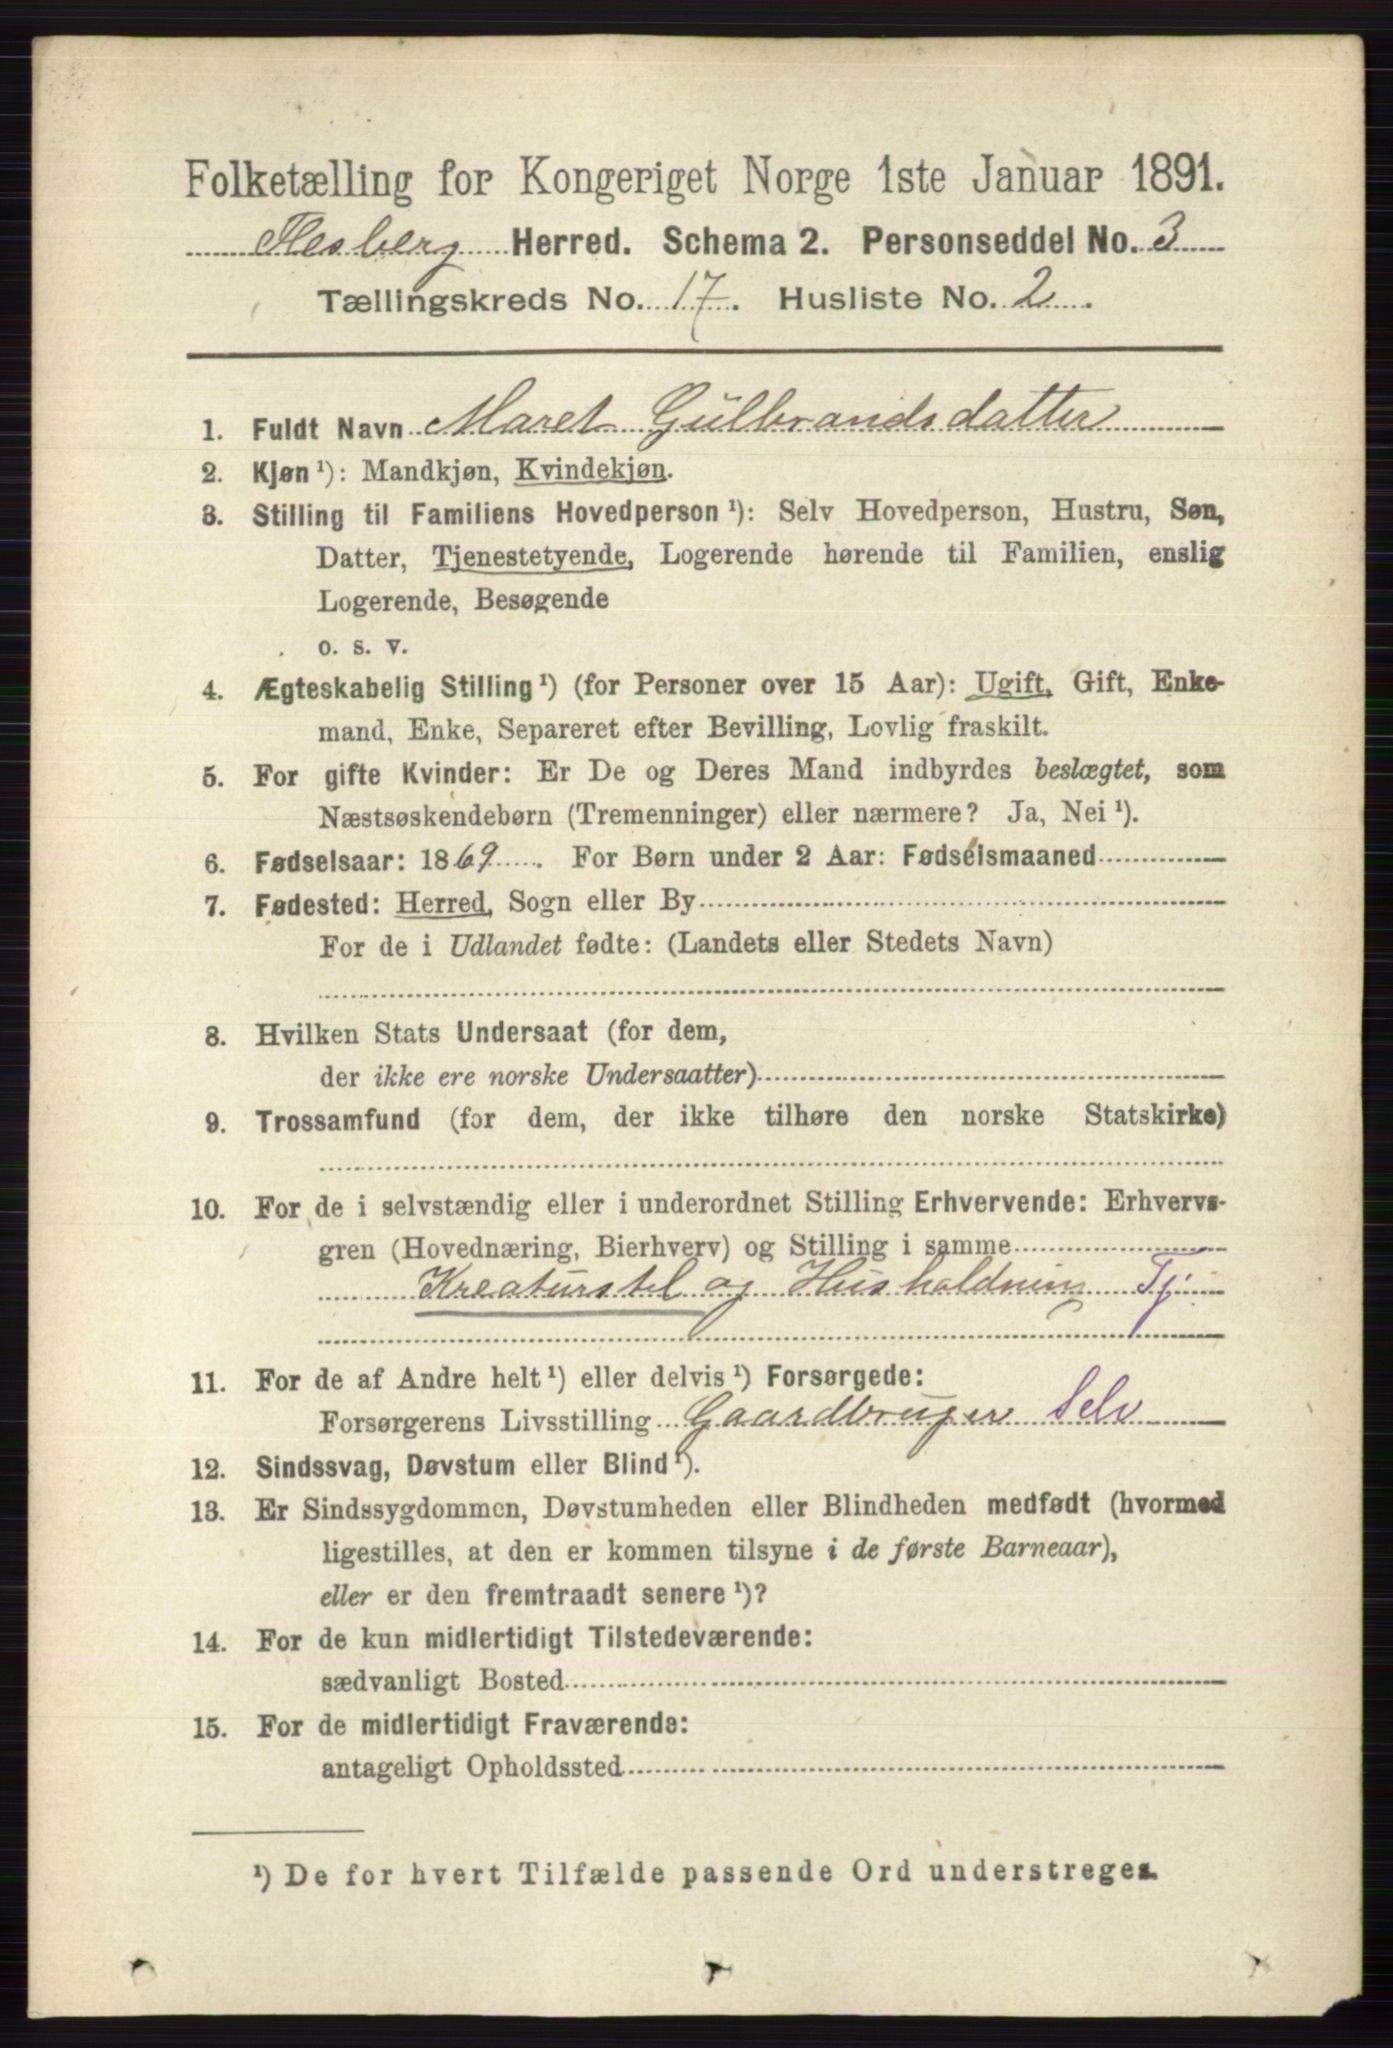 Folketælling for Kongeriget Norge 1ste Januar 1891.
Flesberg Herred. Schema 2. Personseddel No. 3
Tællingskreds No. 17. Husliste No. 2.
1. Fuldt Navn Maret Gulbrandsdatter
2. Kjøn ¹): Mandkjøn, Kvindekjøn.
3. Stilling til Familiens Hovedperson ¹): Selv Hovedperson, Hustru, Søn,
Datter, Tjenestetyende, Logerende hørende til Familien, enslig
Logerende, Besøgende
o. s. v.
4. Ægteskabelig Stilling ¹) (for Personer over 15 Aar): Ugift, Gift, Enke-
mand, Enke, Separeret efter Bevilling, Lovlig fraskilt.
5. For gifte Kvinder: Er De og Deres Mand indbyrdes beslægtet, som
Næstsøskendebørn (Tremenninger) eller nærmere? Ja, Nei ¹).
6. Fødselsaar: 1869. For Børn under 2 Aar: Fødselsmaaned
7. Fødested: Herred, Sogn eller By
For de i Udlandet fødte: (Landets eller Stedets Navn)
8. Hvilken Stats Undersaat (for dem,
der ikke ere norske Undersaatter)
9. Trossamfund (for dem, der ikke tilhøre den norske Statskirke)
10. For de i selvstændig eller i underordnet Stilling Erhvervende: Erhvervs-
gren (Hovednæring, Bierhverv) og Stilling i samme
Kreaturstel og Husholdning Tj.
11. For de af Andre helt ¹) eller delvis ¹) Forsørgede:
Forsørgerens Livsstilling Gaardbruger Selv
12. Sindssvag, Døvstum eller Blind ¹).
13. Er Sindssygdommen, Døvstumheden eller Blindheden medfødt (hvormed
ligestilles, at den er kommen tilsyne i de første Barneaar),
eller er den fremtraadt senere ¹)?
14. For de kun midlertidigt Tilstedeværende:
sædvanligt Bosted
15. For de midlertidigt Fraværende:
antageligt Opholdssted
¹) De for hvert Tilfælde passende Ord understreges.